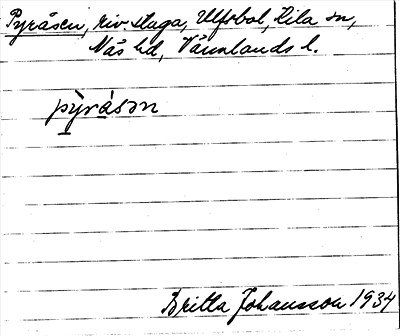 Pyråsen, riv. stuga, Ulfsbol, Kila sn,
Näs hd, Värmlands l.
pỳråsən
Britta Johansson 1934